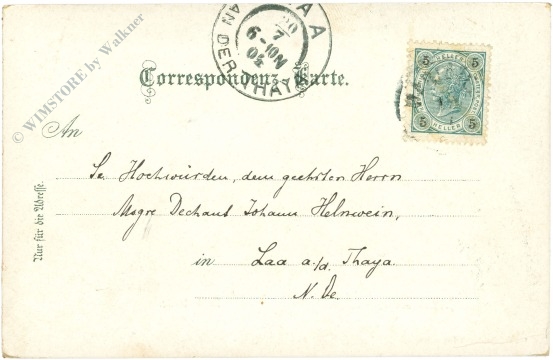 © WIMSTORE by Walkner
LAA
AN DER THAYA
20
7
6-10N
04
Correspondenz-Karte.
5 HELLER 5
5 HELLER 5
An
Nur für die Adresse.
Se Hochwürden, dem geehrten Herrn
Msgre Dechant Johann Helnwein,
in Laa a./d. Thaya.
N. Oe.